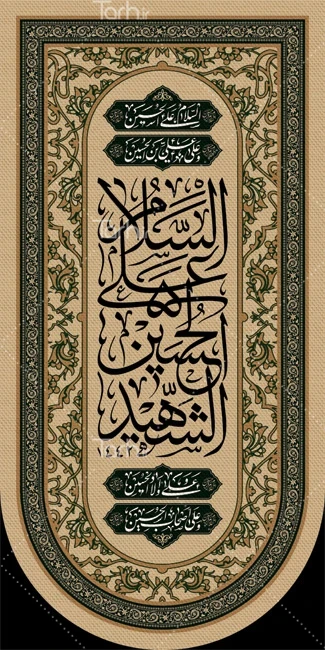 Tarhir
السلام علی الحسین
و علی علی بن الحسین
السَّلام
علی
الحسین
الشّهید
۱۴۴۳
و علی اولاد الحسین
و علی اصحاب الحسین